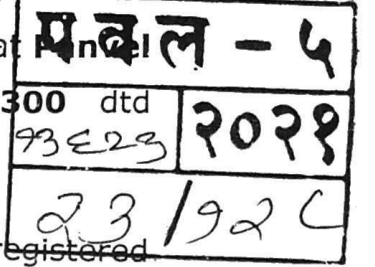 at Panvel
पवल - ५
300 dtd
१३६२३ २०२१
२३/१२८
egistered